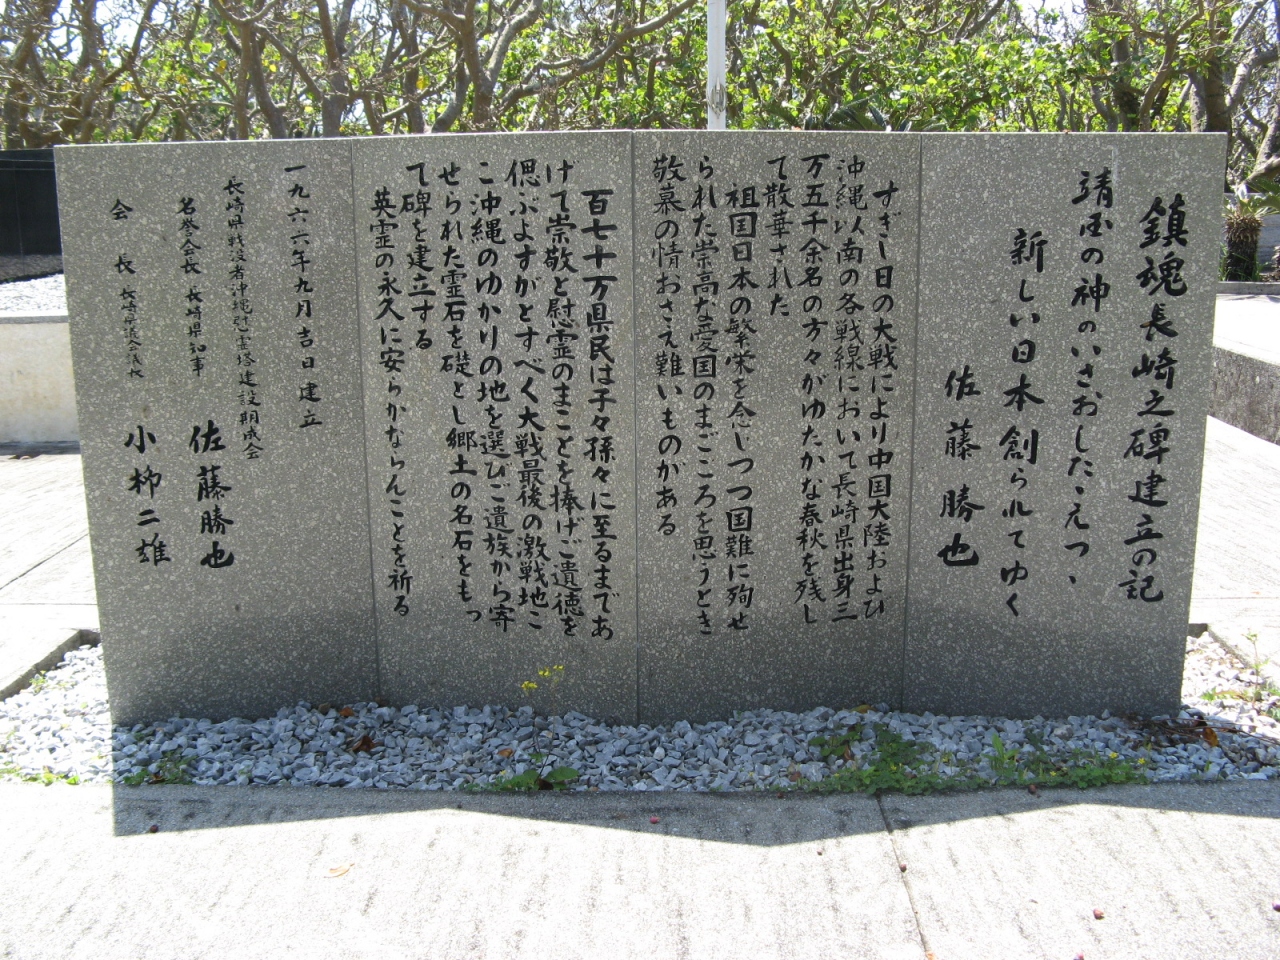 鎮魂長崎之碑建立の記
靖国の神のいさおしたゝえつゝ
新しい日本創られてゆく
佐藤勝也
すぎし日の大戦により中国大陸および
沖縄以南の各戦線において長崎県出身三
万五千余名の方々がゆたかな春秋を残し
て散華された
祖国日本の繁栄を念じつつ国難に殉せ
られた崇高な愛国のまごころを思うとき
敬慕の情おさえ難いものがある
百七十万県民は子々孫々に至るまであ
げて崇敬と慰霊のまことを捧げご遺徳を
偲ぶよすがとすべく大戦最後の激戦地こ
こ沖縄のゆかりの地を選びご遺族から寄
せられた霊石を礎とし郷土の名石をもっ
て碑を建立する
英霊の永久に安らかならんことを祈る
一九六六年九月吉日建立
長崎県戦没者沖縄慰霊塔建設期成会
名誉会長 長崎県知事 佐藤勝也
会長 長崎県議会議長 小柳二雄